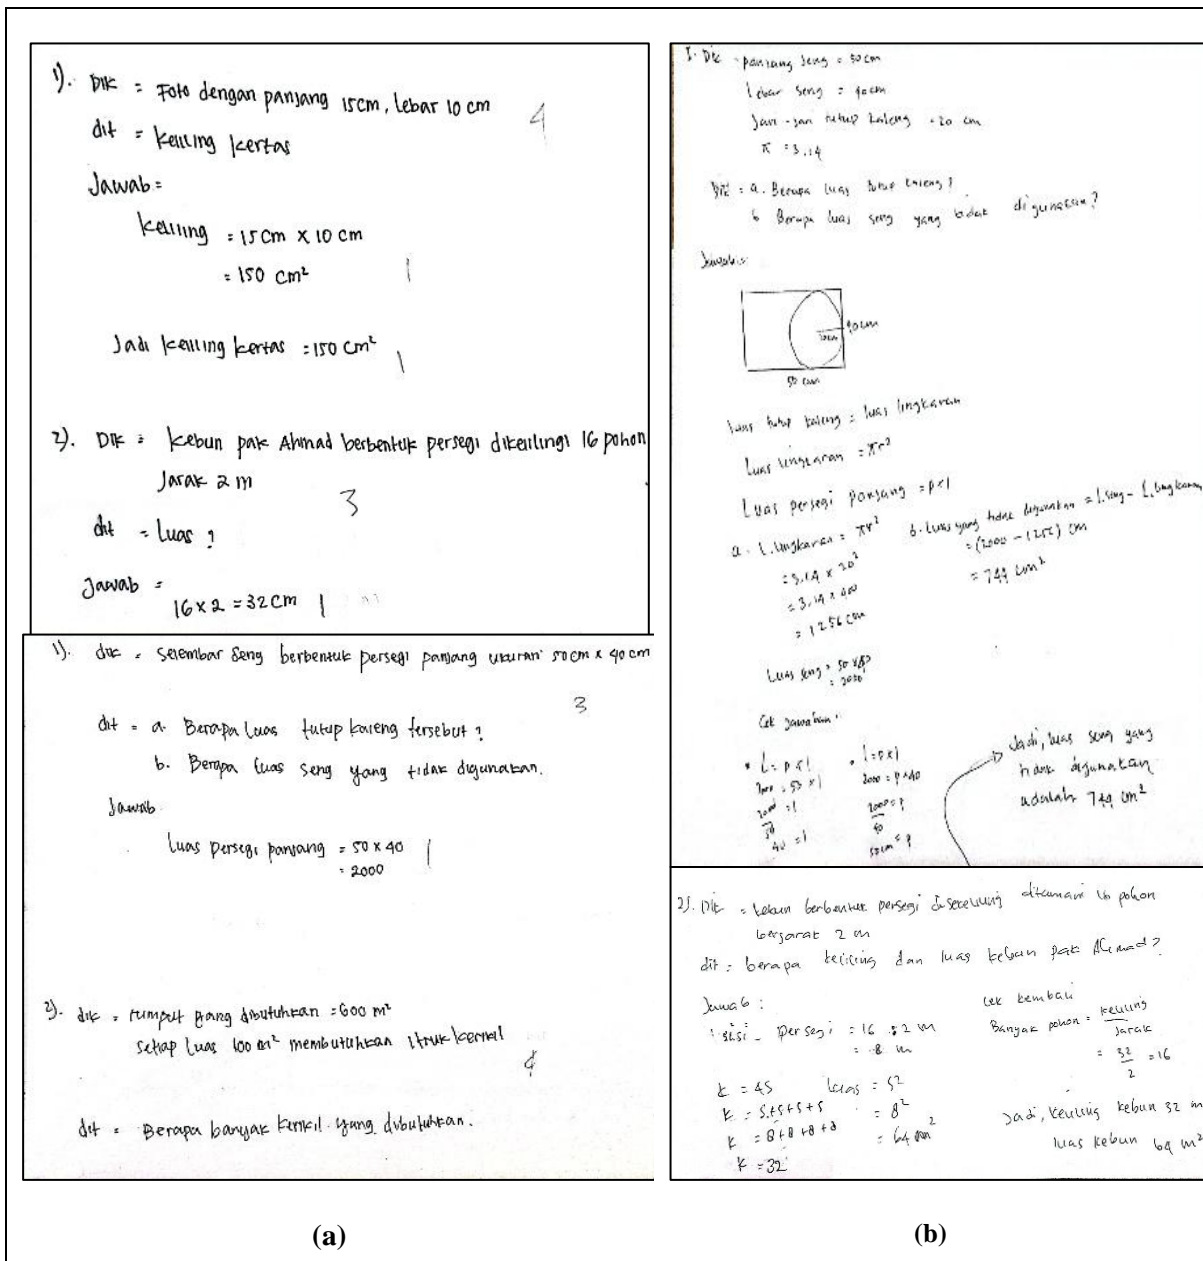 1). Dik = Foto dengan panjang 15cm, lebar 10 cm
4
dit = keliling kertas
Jawab =
keliling = 15 cm x 10 cm
= 150 cm²
1
Jadi keliling kertas = 150 cm²
1
2). Dik = kebun pak Ahmad berbentuk persegi dikelilingi 16 pohon
Jarak 2 m
3
dit = Luas ?
Jawab =
16 x 2 = 32 cm
1
1). dik = selembar seng berbentuk persegi panjang ukuran 50 cm x 40 cm
3
dit = a. Berapa luas tutup kaleng tersebut ?
b. Berapa luas seng yang tidak digunakan.
Jawab
Luas persegi panjang = 50 x 40
= 2000
1
2). dik = rumput yang dibutuhkan = 600 m²
setiap luas 100 m² membutuhkan 1 truk kerikil
4
dit = Berapa banyak kerikil yang dibutuhkan.
(a)
1. Dik = panjang seng = 50 cm
Lebar seng = 40 cm
Jari-jari tutup kaleng = 20 cm
π = 3,14
Dit = a. Berapa luas tutup kaleng ?
b Berapa luas seng yang tidak digunakan ?
Jawab :
40 cm
20cm
50 cm
Luas tutup kaleng = luas lingkaran
Luas lingkaran = πr²
Luas persegi panjang = p x l
a. L. lingkaran = πr²
= 3,14 x 20²
= 3,14 x 400
= 1256 cm
b. Luas yang tidak digunakan = L.seng - L. lingkaran
= (2000 - 1256) cm
= 744 cm²
Luas seng = 50 x 40
= 2000
Cek jawaban :
• L = p x l
2000 = 50 x l
2000 = l
50
40 = l
• L = p x l
2000 = p x 40
2000 = p
40
50 cm = p
Jadi, luas seng yang
tidak digunakan
adalah 744 cm²
2). Dik = kebun berbentuk persegi disekeliling ditanami 16 pohon
berjarak 2 m
dit : berapa keliling dan luas kebun pak Ahmad ?
Jawab :
sisi persegi = 16 : 2 m
= 8 m
k = 4s
k = s+s+s+s
k = 8+8+8+8
k = 32
Luas = s²
= 8²
= 64 m²
cek kembali
Banyak pohon = keliling
jarak
= 32 = 16
2
Jadi, keliling kebun 32 m
luas kebun 64 m²
(b)